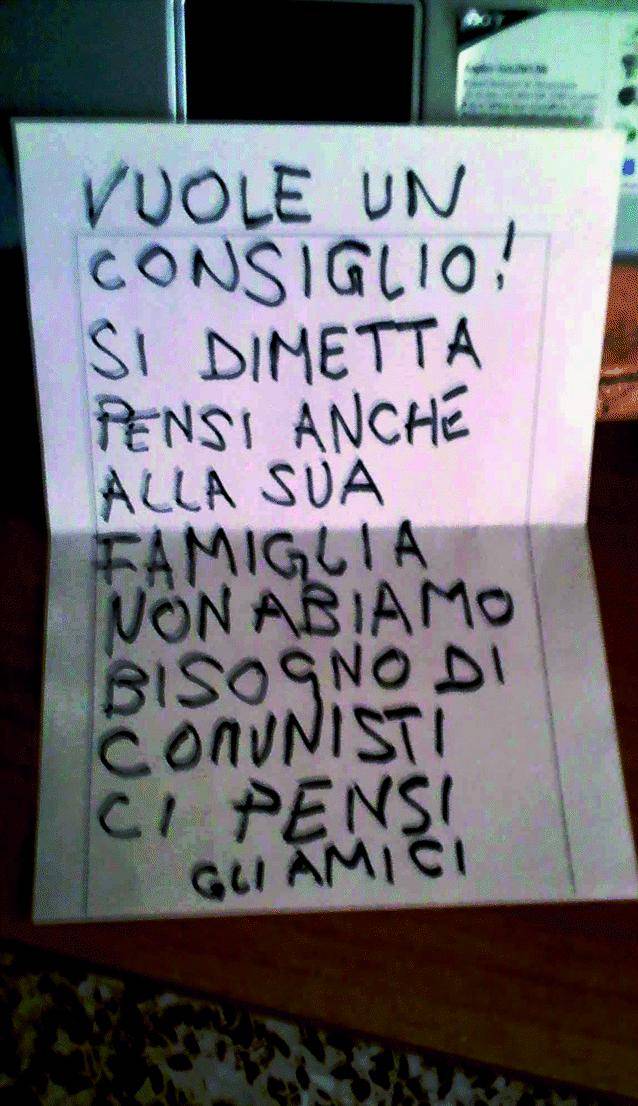 VUOLE UN
CONSIGLIO!
SI DIMETTA
PENSI ANCHE
ALLA SUA
FAMIGLIA
NON ABIAMO
BISOGNO DI
COMUNISTI
CI PENSI
GLI AMICI